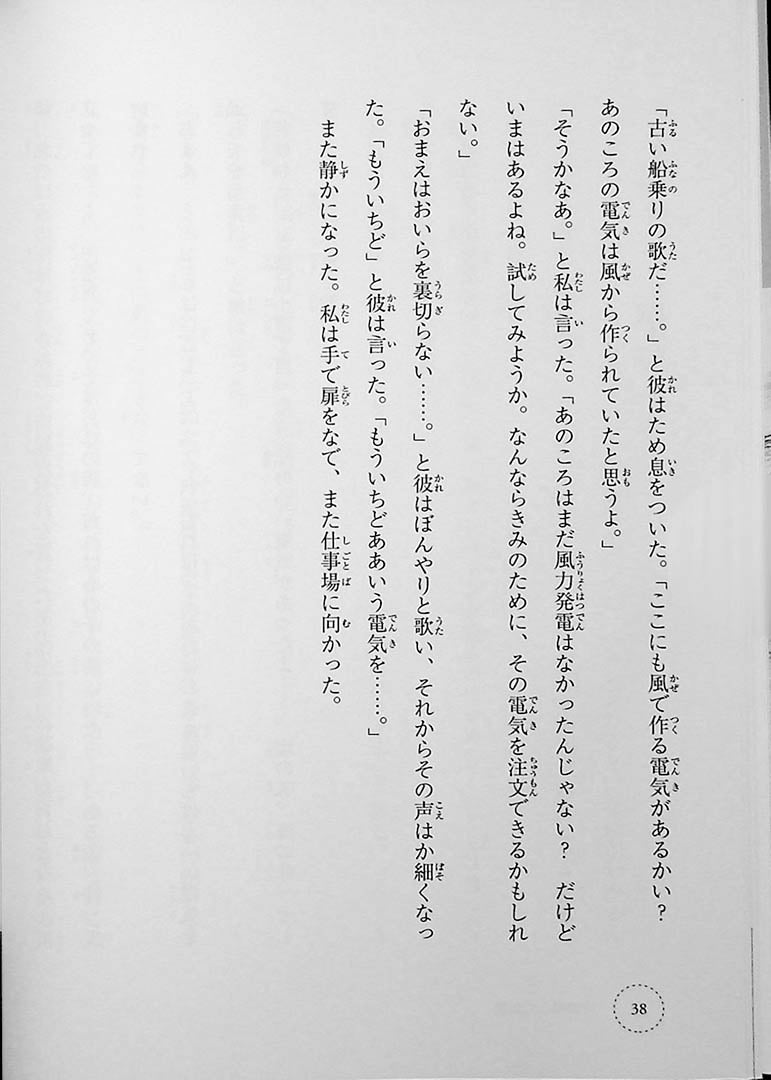 「古い船乗りの歌だ……。」と彼はため息をついた。「ここにも風で作る電気があるかい？
あのころの電気は風から作られていたと思うよ。」
「そうかなあ。」と私は言った。「あのころはまだ風力発電はなかったんじゃない？　だけど
いまはあるよね。試してみようか。なんならきみのために、その電気を注文できるかもしれ
ない。」
「おまえはおいらを裏切らない……。」と彼はぼんやりと歌い、それからその声はか細くなっ
た。「もういちど」と彼は言った。「もういちどああいう電気を……。」
また静かになった。私は手で扉をなで、また仕事場に向かった。
38